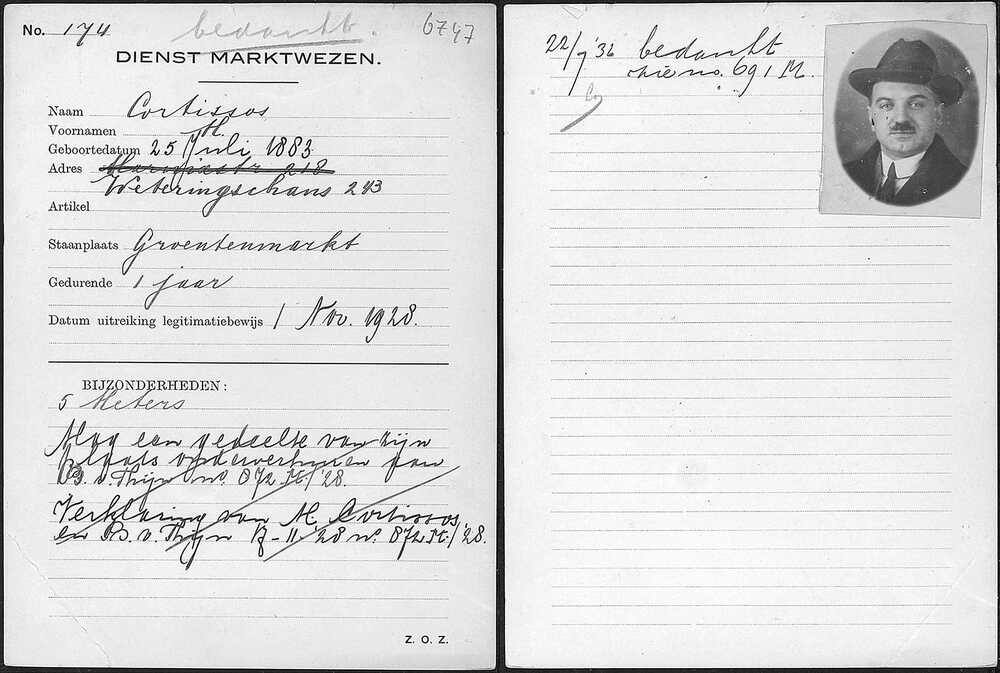 No. 174
bedankt.
6747
DIENST MARKTWEZEN.
Naam Cortissos
Voornamen M.
Geboortedatum 25 Juli 1883
Adres 218
Weteringschans 243
Artikel
Staanplaats Groentenmarkt
Gedurende 1 jaar
Datum uitreiking legitimatiebewijs 1 Nov. 1928.
BIJZONDERHEDEN:
5 Meters
Mag een gedeelte van zijn
plaats onderverhuren aan
B. v. Thijn no. 872 M./'28.
Verklaring van M. Cortissos
en B. v. Thijn 17-11-'28 no. 872 M./'28.
Z. O. Z.
22/7 '32 bedankt
zie no. 69 1 M.